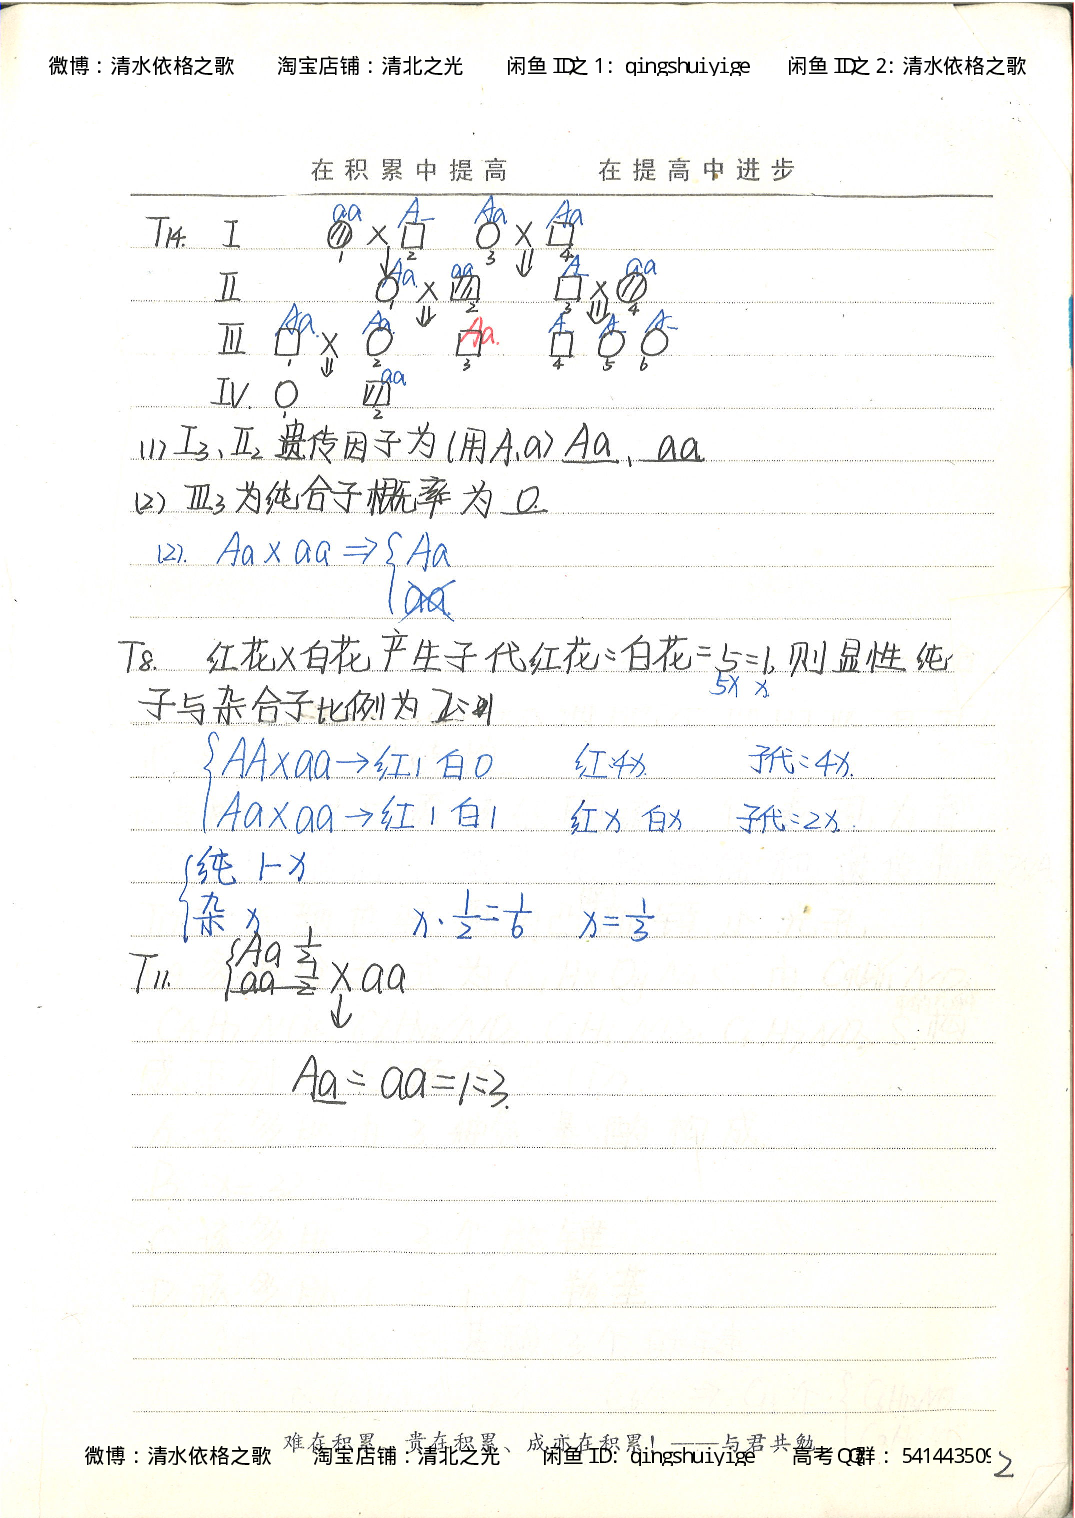 微博：清水依格之歌 淘宝店铺：清北之光 闲鱼 ID之 1：qingshuiyige 闲鱼 ID之 2：清水依格之歌
在积累中提高 在提高中进步
T14. I aa × A_ Aa × Aa
1 2 3 4
II Aa × aa A_ × aa
1 2 3 4
III Aa × Aa Aa. A_ A_ A_
1 2 3 4 5 6
IV. aa
1 2
(1) I3、II2 遗传因子为(用A、a) Aa、aa
(2) III3为纯合子概率为 0.
(2). Aa × aa ⇒ { Aa
aa.
T8. 红花×白花产生子代红花:白花=5:1, 则显性纯
5x x
子与杂合子比例为
{ AA×aa→红1 白0 红:4x 子代:4x.
Aa×aa→红1 白1 红x 白x 子代:2x.
{ 纯 1-x
杂 x x·1/2=1/6 x=1/3
T11. { Aa 1/2
aa 1/2 × aa
↓
Aa : aa = 1:3.
难在积累、贵在积累、成亦在积累！——与君共勉
微博：清水依格之歌 淘宝店铺：清北之光 闲鱼 ID：qingshuiyige 高考QQ群：541443509
2